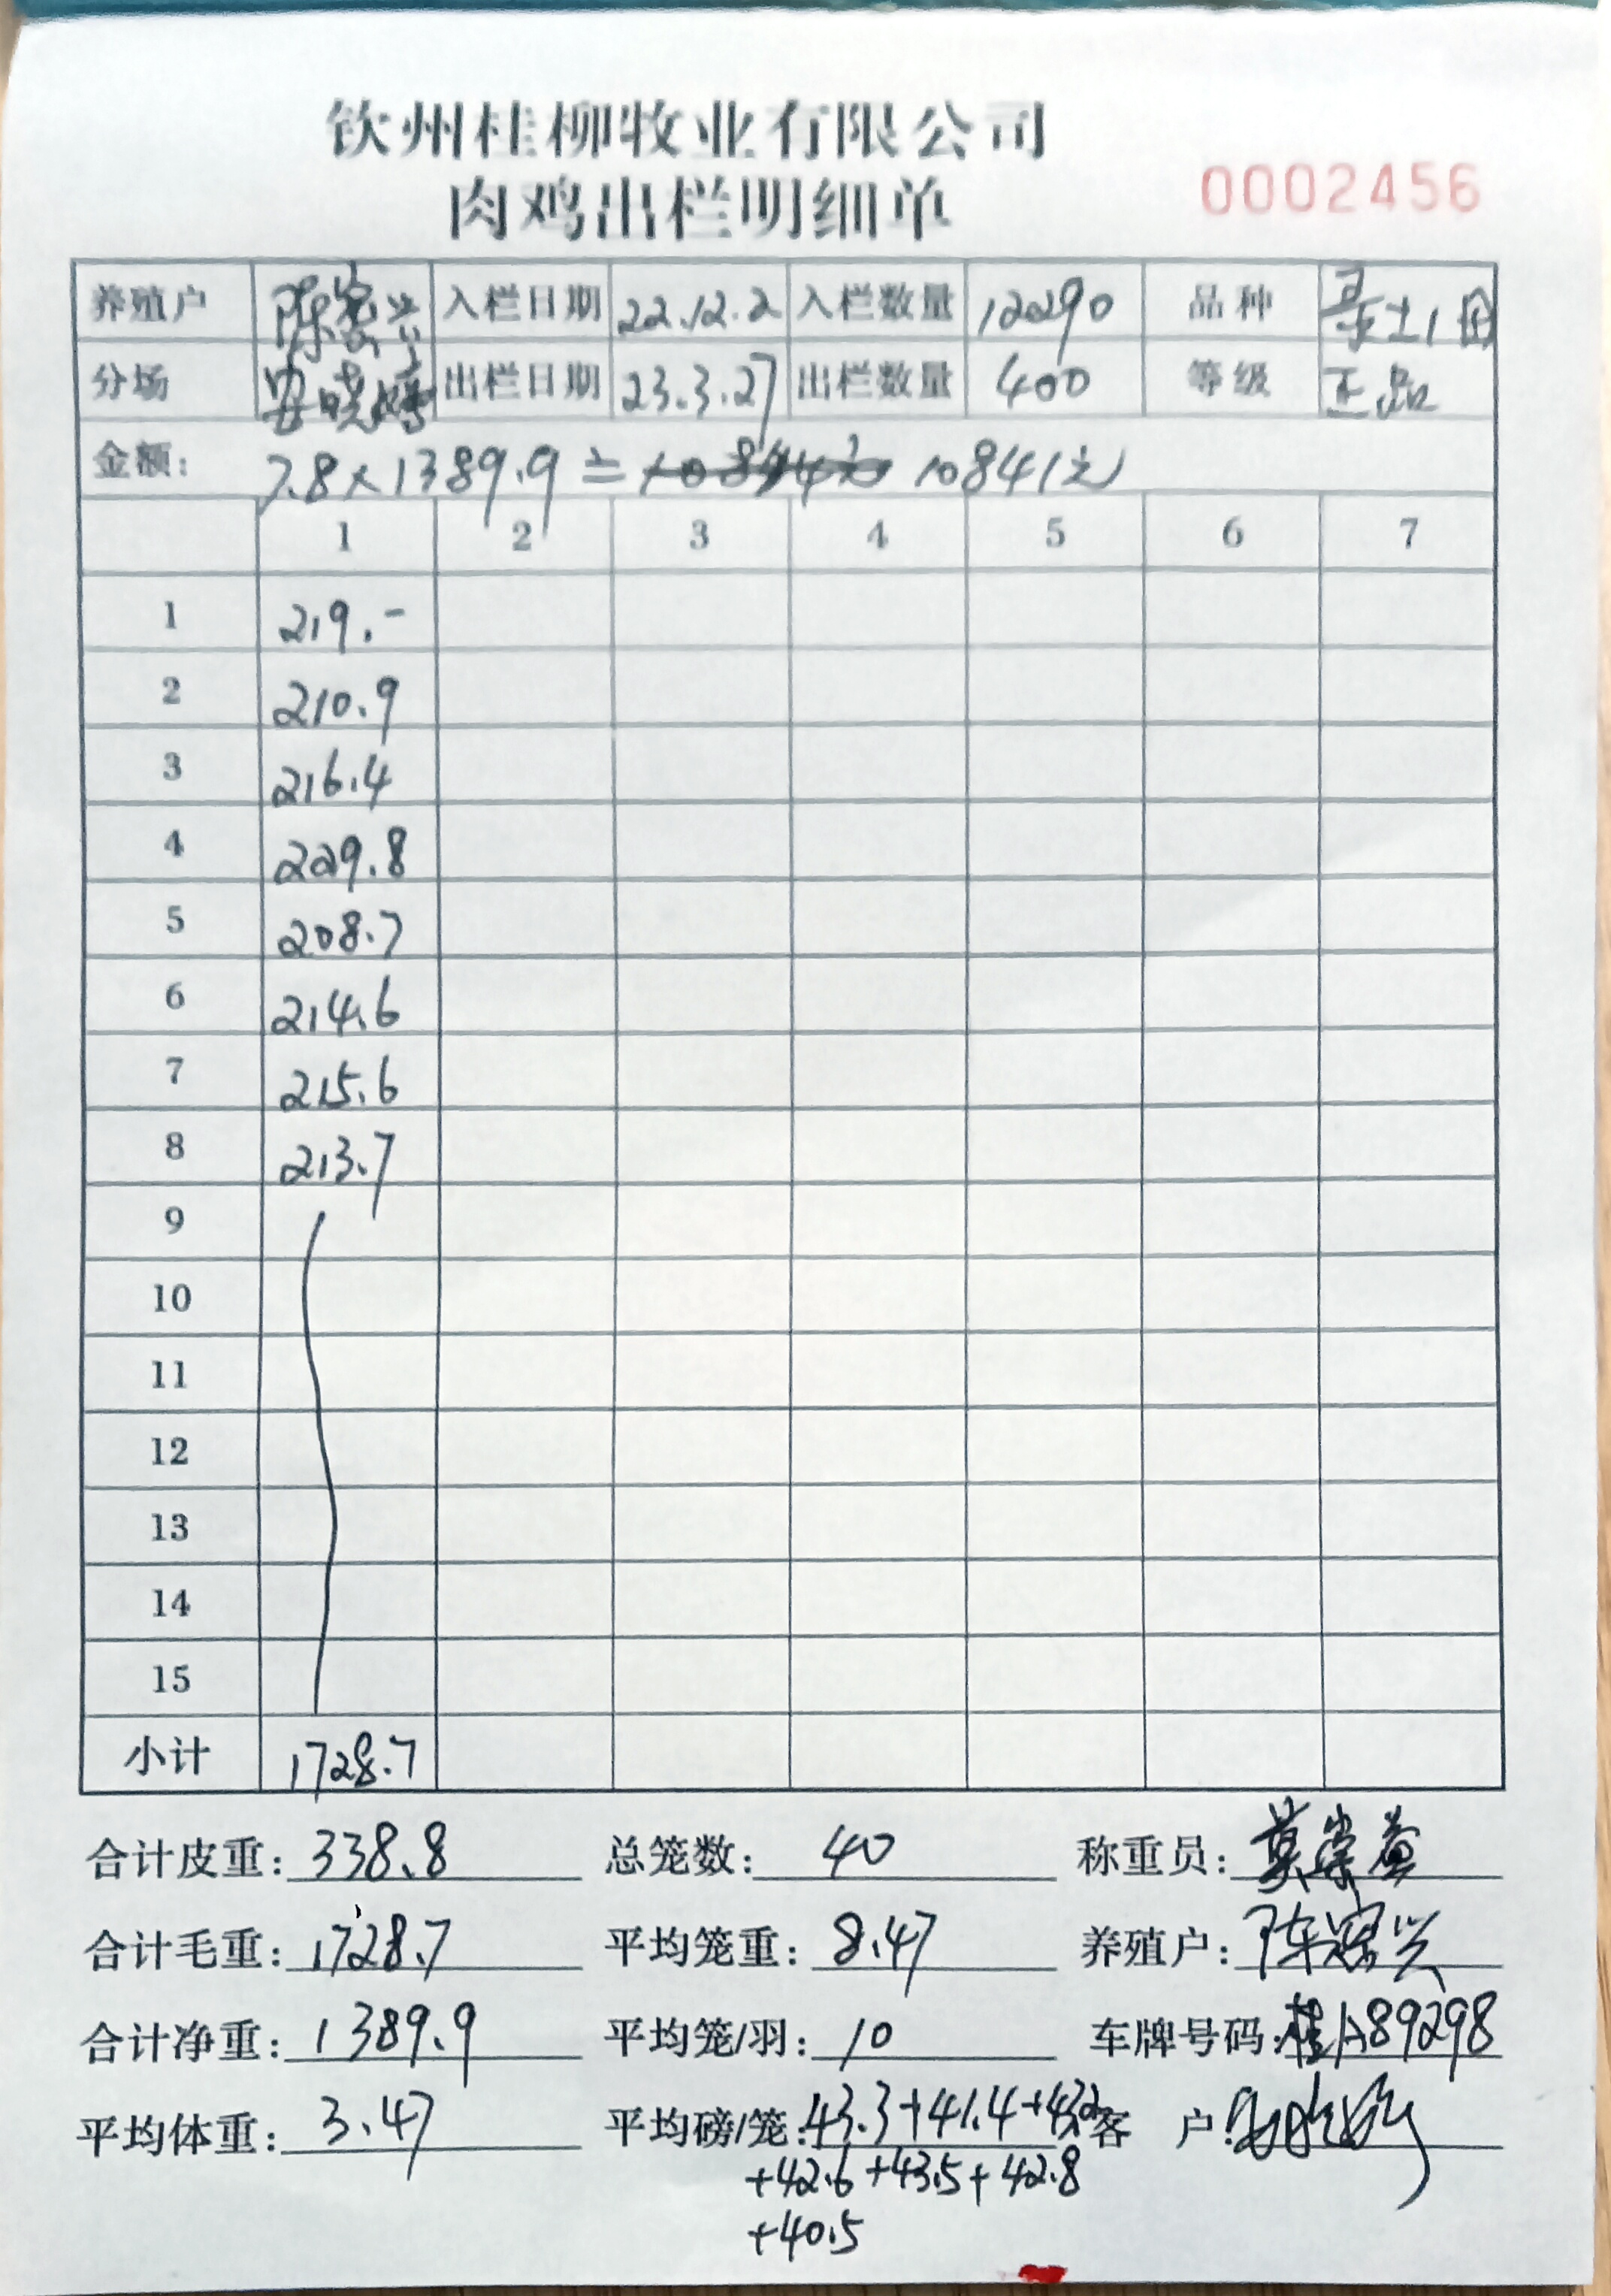 钦州桂柳牧业有限公司
肉鸡出栏明细单
0002456
养殖户 入栏日期 22.12.2 入栏数量 12290 品种
分场 出栏日期 23.3.27 出栏数量 400 等级 正品
金额: 7.8×1389.9= 10841元
1 2 3 4 5 6 7
1 219.-
2 210.9
3 216.4
4 229.8
5 208.7
6 214.6
7 215.6
8 213.7
9
10
11
12
13
14
15
小计 1728.7
合计皮重: 338.8 总笼数: 40 称重员:
合计毛重: 1728.7 平均笼重: 8.47 养殖户:
合计净重: 1389.9 平均笼/羽: 10 车牌号码: 桂A89298
平均体重: 3.47 平均磅/笼: 43.3+41.4+43.2 客 户:
+42.6+43.5+42.8
+40.5